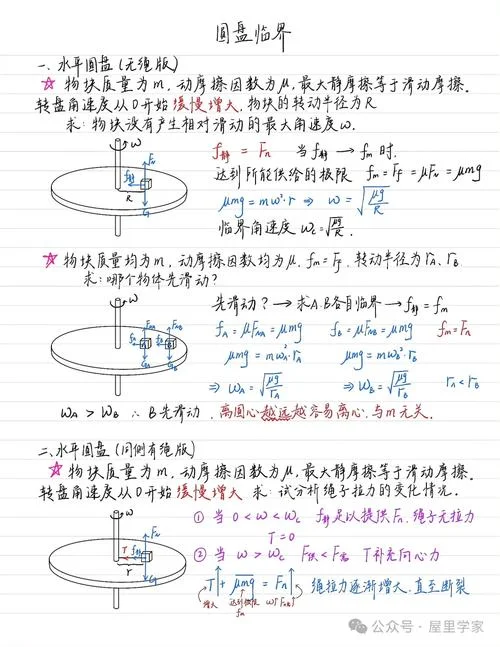 圆盘临界
一、水平圆盘 (无绳版)
☆ 物块质量为m, 动摩擦因数为μ, 最大静摩擦等于滑动摩擦.
转盘角速度从0开始缓慢增大, 物块的转动半径为R
求: 物块没有产生相对滑动的最大角速度ω.
ω
R
f静 = Fn 当f静 → fm 时.
达到所能供给的极限 fm = Ff = μFN = μmg
μmg = mω²·r ⇒ ω = √(μg/R)
临界角速度 ωc = √(μg/R).
☆ 物块质量均为m, 动摩擦因数均为μ. fm = Ff, 转动半径为rA、rB
求: 哪个物体先滑动?
ω
先滑动? → 求A、B各自临界 → f静 = fm
fA = μFNA = μmg fB = μFNB = μmg fm = Fn
μmg = mωA²·rA μmg = mωB²·rB
⇒ ωA = √(μg/rA) ⇒ ωB = √(μg/rB) rA < rB
ωA > ωB ∴ B先滑动. 离圆心越远越容易离心, 与m无关.
二、水平圆盘 (同侧有绳版)
☆ 物块质量为m, 动摩擦因数为μ, 最大静摩擦等于滑动摩擦.
转盘角速度从0开始缓慢增大 求: 试分析绳子拉力的变化情况.
ω
T
r
① 当 0 < ω < ωc f静足以提供Fn. 绳子无拉力
T = 0
② 当 ω > ωc F供 < F需 T补充向心力
T + μmg = Fn 绳拉力逐渐增大, 直至断裂
增大 达到极限 fm ω↑Fn↑
公众号 · 屋里学家